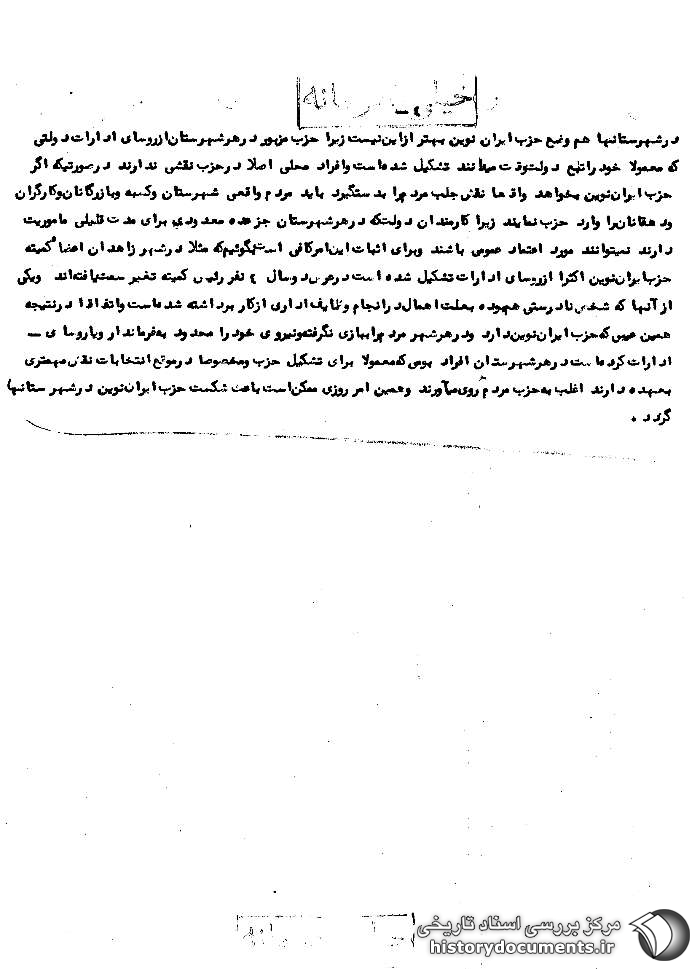 خیلی محرمانه
در شهرستانها هم وضع حزب ایران نوین بهتر از این نیست زیرا حزب مزبور در هر شهرستان از روسای ادارات دولتی
که معمولا خود را تابع دولت وقت میدانند تشکیل شده است و افراد محلی اصلا در حزب نقشی ندارند در صورتیکه اگر
حزب ایران نوین بخواهد واقعا نقش جلب مردم را بدست گیرد باید مردم واقعی شهرستان و کسبه و بازرگانان و کارگران
و دهقانان را وارد حزب نمایند زیرا کارمندان دولت که در هر شهرستان جز عده معدودی برای مدت قلیلی ماموریت
دارند نمیتوانند مورد اعتماد عمومی باشند و برای اثبات این امر کافی است بگوئیم که مثلا در شهر زاهدان اعضا کمیته
حزب ایران نوین اکثرا از روسای ادارات تشکیل شده است در عرض دو سال نفر رئیس کمیته تغییر سمت یافته اند و یکی
از آنها که شخص نادرستی هم بوده بعلت اهمال در انجام وظایف اداری از کار برداشته شده است و اتفاقا در نتیجه
همین عیبی که حزب ایران نوین دارد و در هر شهر مردم را ببازی نگرفته و نیروی خود را محدود به فرماندار و یا روسای ـ
ادارات کرده است در هر شهرستان افراد بومی که معمولا برای تشکیل حزب و مخصوصا در موقع انتخابات نقش مهمتری
بعهده دارند اغلب به حزب مردم روی میآورند و همین امر روزی ممکن است باعث شکست حزب ایران نوین در شهرستانها
گردد .
مرکز بررسی اسناد تاریخی
historydocuments.ir